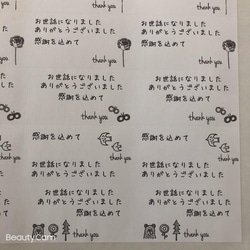 thank you
thank you
お世話になりました
ありがとうございました
感謝を込めて
thank you
お世話になりました
ありがとうございました
感謝を込めて
thank you
お世話になりました
ありがとうございました
感謝を込めて
thank you
お世話になりました
ありがとうございました
感謝を込めて
thank you
感謝を込めて
thank you
感謝を込めて
thank you
お世話になりました
ありがとうございました
感謝を込めて
thank you
お世話になりました
ありがとうございました
感謝を込めて
thank you
BeautyCam